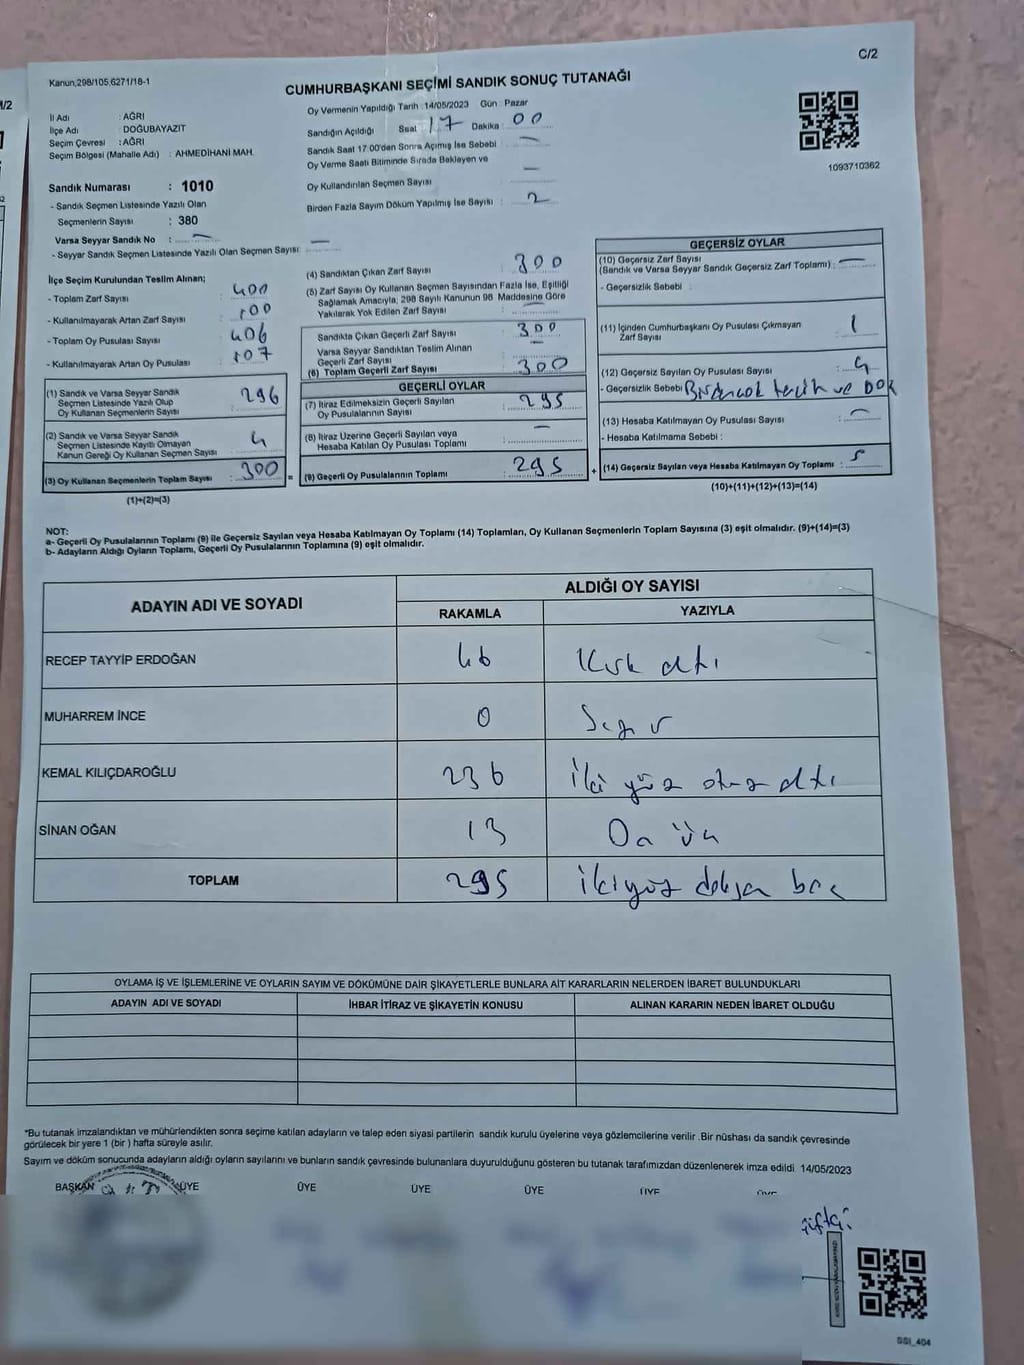 C/2
Kanun,298/105,6271/18-1
CUMHURBAŞKANI SEÇİMİ SANDIK SONUÇ TUTANAĞI
İl Adı : AĞRI
İlçe Adı : DOĞUBAYAZIT
Seçim Çevresi : AĞRI
Seçim Bölgesi (Mahalle Adı) : AHMEDİHANİ MAH.
Oy Vermenin Yapıldığı Tarih :14/05/2023 Gün : Pazar
Sandığın Açıldığı Saat 17 Dakika : 00
Sandık Saat 17:00'den Sonra Açımış İse Sebebi : —
Oy Verme Saati Bitiminde Sırada Bekleyen ve
Oy Kullandırılan Seçmen Sayısı : —
Birden Fazla Sayım Döküm Yapılmış İse Sayısı : 2
1093710362
Sandık Numarası : 1010
- Sandık Seçmen Listesinde Yazılı Olan
Seçmenlerin Sayısı : 380
Varsa Seyyar Sandık No : —
- Seyyar Sandık Seçmen Listesinde Yazılı Olan Seçmen Sayısı: —
İlçe Seçim Kurulundan Teslim Alınan;
- Toplam Zarf Sayısı : 400
- Kullanılmayarak Artan Zarf Sayısı : 100
- Toplam Oy Pusulası Sayısı : 406
- Kullanılmayarak Artan Oy Pusulası : 107
(1) Sandık ve Varsa Seyyar Sandık
Seçmen Listesinde Yazılı Olup
Oy Kullanan Seçmenlerin Sayısı : 296
(2) Sandık ve Varsa Seyyar Sandık
Seçmen Listesinde Kayıtlı Olmayan
Kanun Gereği Oy Kullanan Seçmen Sayısı : 4
(3) Oy Kullanan Seçmenlerin Toplam Sayısı : 300 =
(1)+(2)=(3)
(4) Sandıktan Çıkan Zarf Sayısı : 300
(5) Zarf Sayısı Oy Kullanan Seçmen Sayısından Fazla İse, Eşitliği
Sağlamak Amacıyla, 298 Sayılı Kanunun 98 Maddesine Göre
Yakılarak Yok Edilen Zarf Sayısı : —
Sandıkta Çıkan Geçerli Zarf Sayısı : 300
Varsa Seyyar Sandıktan Teslim Alınan
Geçerli Zarf Sayısı : —
(6) Toplam Geçerli Zarf Sayısı : 300
GEÇERLİ OYLAR
(7) İtiraz Edilmeksizin Geçerli Sayılan
Oy Pusulalarının Sayısı : 295
(8) İtiraz Üzerine Geçerli Sayılan veya
Hesaba Katılan Oy Pusulası Toplamı : —
(9) Geçerli Oy Pusulalarının Toplamı : 295 +
GEÇERSİZ OYLAR
(10) Geçersiz Zarf Sayısı
(Sandık ve Varsa Seyyar Sandık Geçersiz Zarf Toplamı) : —
- Geçersizlik Sebebi :
(11) İçinden Cumhurbaşkanı Oy Pusulası Çıkmayan
Zarf Sayısı : 1
(12) Geçersiz Sayılan Oy Pusulası Sayısı : 4
- Geçersizlik Sebebi Birden çok tercih ve
(13) Hesaba Katılmayan Oy Pusulası Sayısı : —
- Hesaba Katılmama Sebebi :
(14) Geçersiz Sayılan veya Hesaba Katılmayan Oy Toplamı : 5
(10)+(11)+(12)+(13)=(14)
NOT:
a- Geçerli Oy Pusulalarının Toplamı (9) ile Geçersiz Sayılan veya Hesaba Katılmayan Oy Toplamı (14) Toplamları, Oy Kullanan Seçmenlerin Toplam Sayısına (3) eşit olmalıdır. (9)+(14)=(3)
b- Adayların Aldığı Oyların Toplamı, Geçerli Oy Pusulalarının Toplamına (9) eşit olmalıdır.
ADAYIN ADI VE SOYADI
ALDIĞI OY SAYISI
RAKAMLA YAZIYLA
RECEP TAYYİP ERDOĞAN 46 Kırk altı
MUHARREM İNCE 0 Sıfır
KEMAL KILIÇDAROĞLU 236 iki yüz otuz altı
SİNAN OĞAN 13 On üç
TOPLAM 295 ikiyüz doksan beş
OYLAMA İŞ VE İŞLEMLERİNE VE OYLARIN SAYIM VE DÖKÜMÜNE DAİR ŞİKAYETLERLE BUNLARA AİT KARARLARIN NELERDEN İBARET BULUNDUKLARI
ADAYIN ADI VE SOYADI İHBAR İTİRAZ VE ŞİKAYETİN KONUSU ALINAN KARARIN NEDEN İBARET OLDUĞU
*Bu tutanak imzalandıktan ve mühürlendikten sonra seçime katılan adayların ve talep eden siyasi partilerin sandık kurulu üyelerine veya gözlemcilerine verilir .Bir nüshası da sandık çevresinde
görülecek bir yere 1 (bir ) hafta süreyle asılır.
Sayım ve döküm sonucunda adayların aldığı oyların sayılarını ve bunların sandık çevresinde bulunanlara duyurulduğunu gösteren bu tutanak tarafımızdan düzenlenerek imza edildi 14/05/2023
BAŞKAN ÜYE ÜYE ÜYE ÜYE ÜYE ÜYE
SSI_404